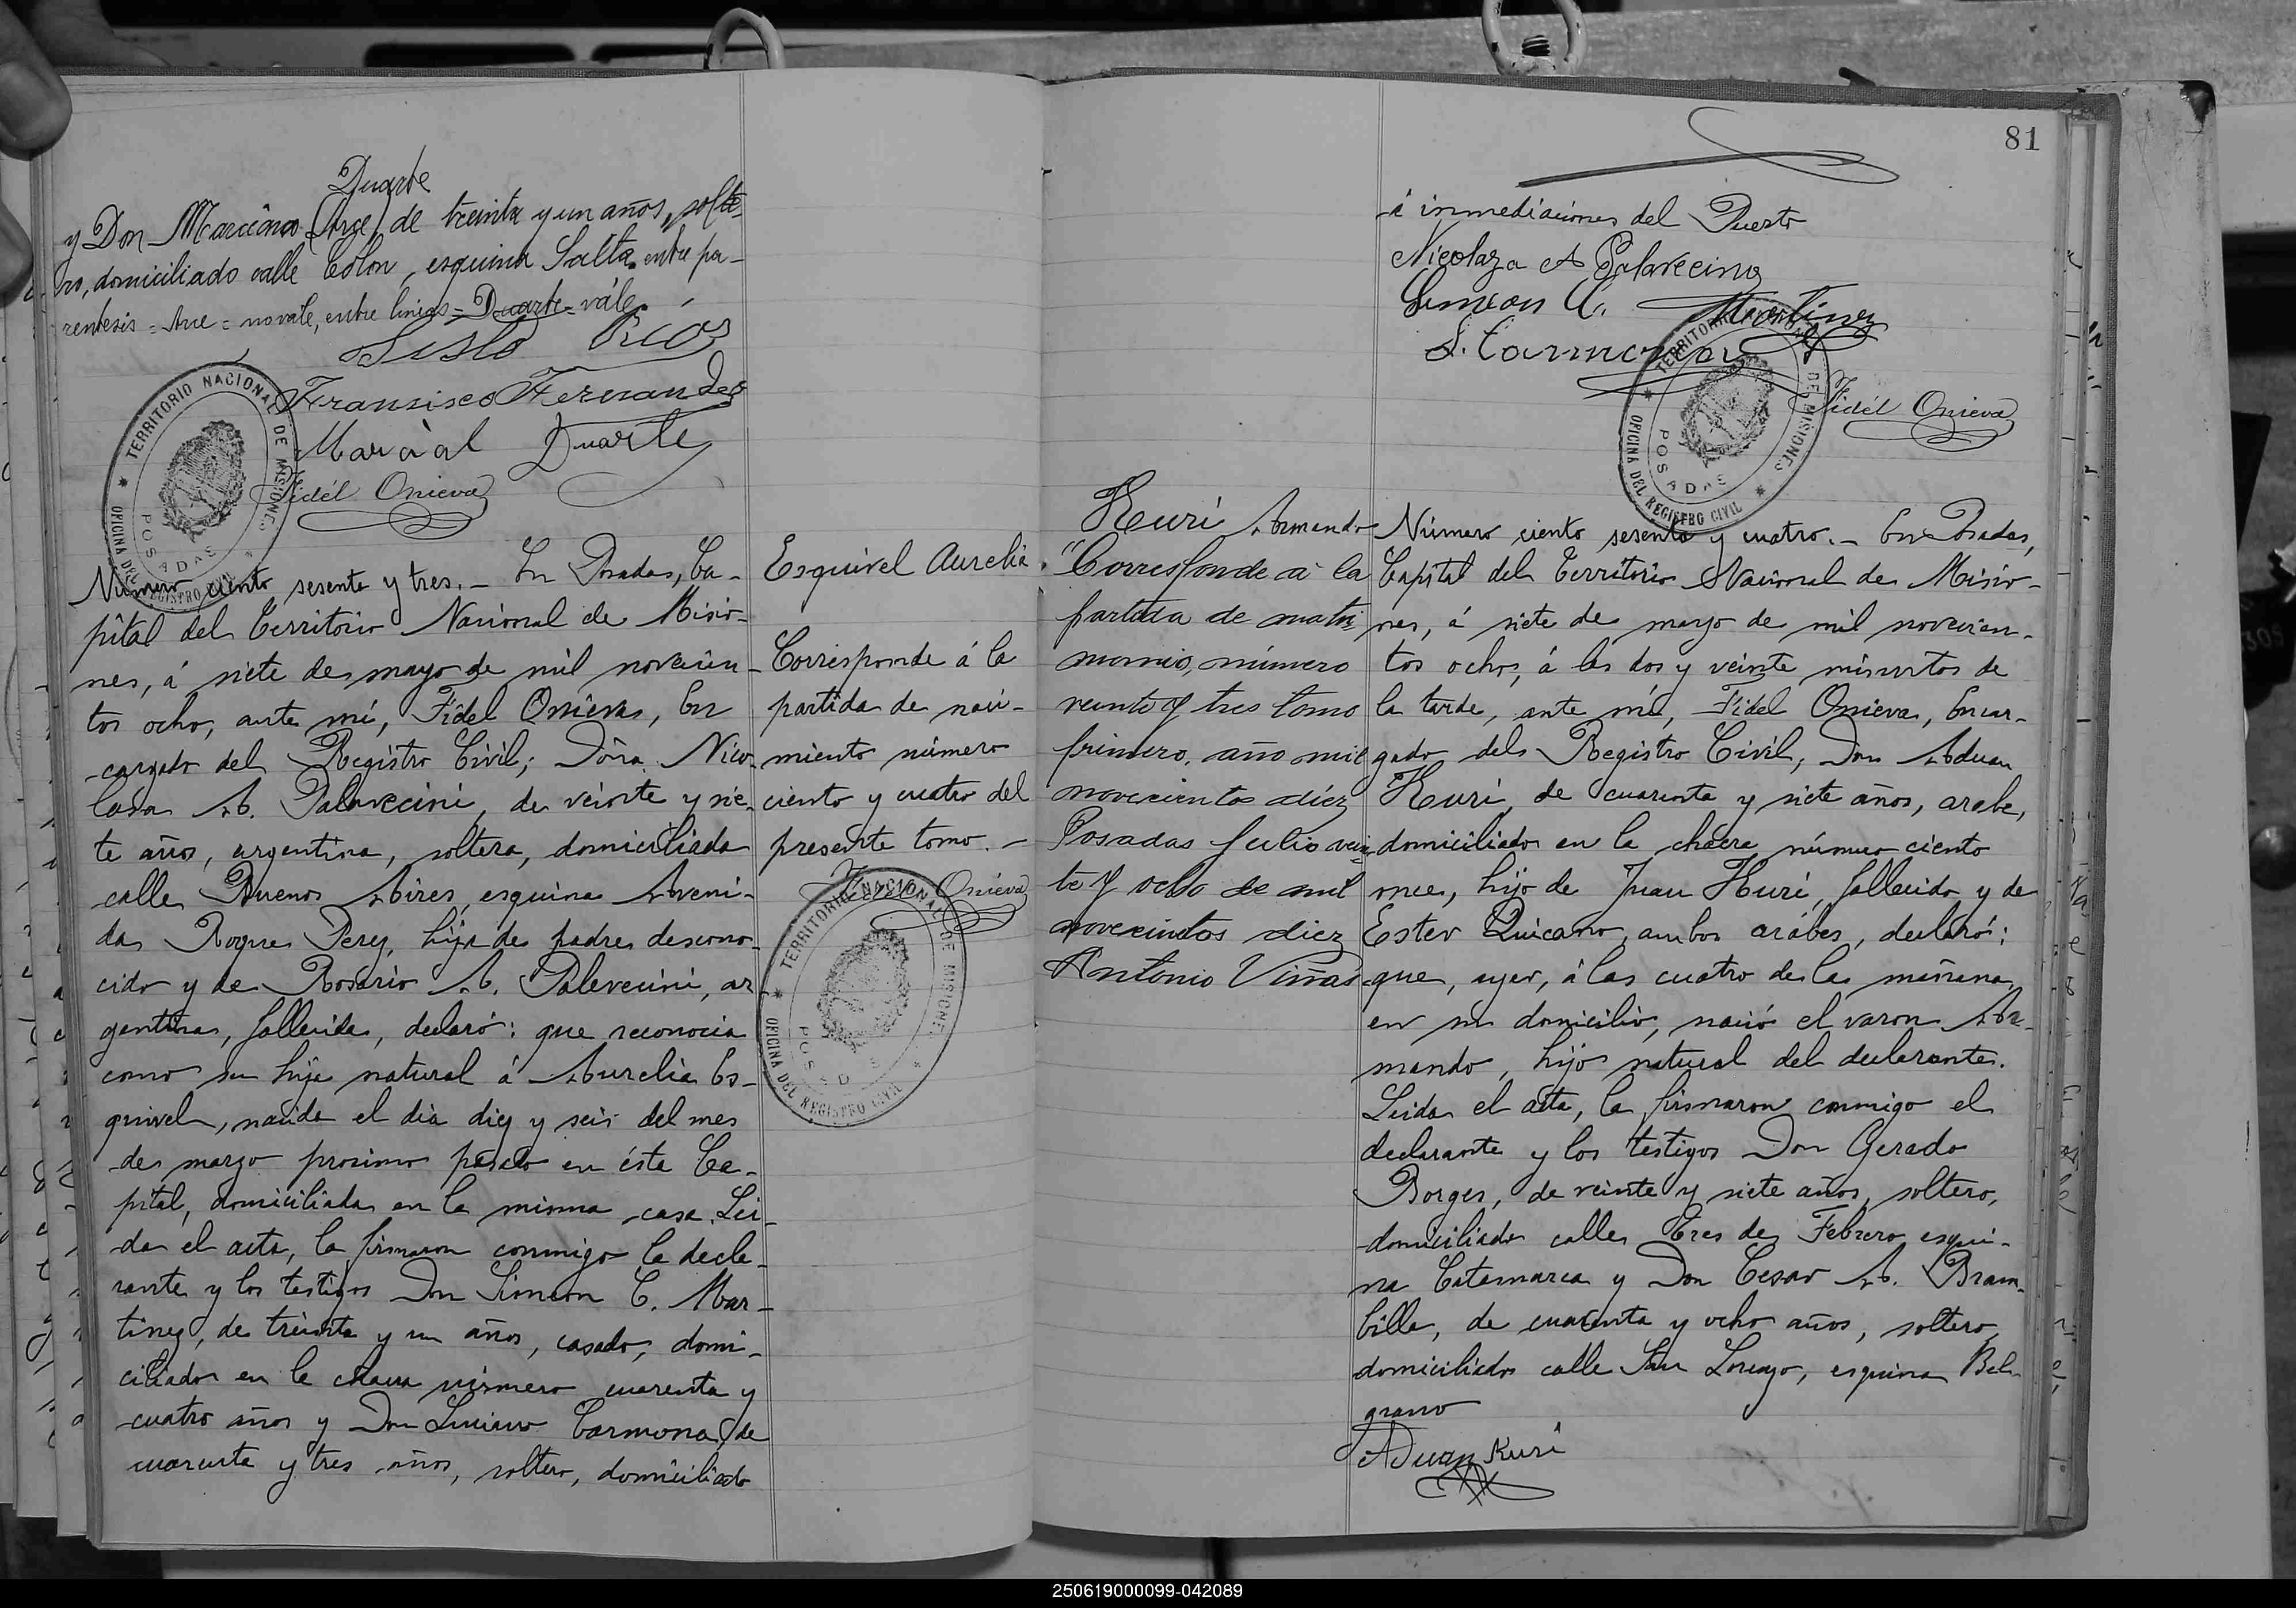 Duarte
y Don Marciano (Arce) de treinta y un años, solte-
ro, domiciliado calle Colon, esquina Salta. entre pa-
rentesis = Arce = no vale, entre lineas = Duarte = vále. -
Sisto Rios
Fransisco Fernandez
Marcial Duarte
Fidél Onieva
TERRITORIO NACIONAL DE MISIONES
OFICINA DEL REGISTRO CIVIL
POSADAS
Número ciento sesenta y tres. - En Posadas, Ca-
pital del Territorio Nacional de Misio-
nes, á siete de mayo de mil novecien-
tos ocho, ante mí, Fidel Onieva, En
cargado del Registro Civil; Doña Nico-
lasa A. Palavecini, de veinte y sie-
te años, argentina, soltera, domiciliada
calle Buenos Aires, esquina Aveni-
da Roque Perez, hija de padre descono-
cido y de Rosario A. Palevecini, ar-
gentina, fallecida, declaró: que reconocia
como su hija natural á Aurelia Es-
quivel, nacida el dia diez y seis del mes
de marzo proximo pasado en ésta Ca-
pital, domiciliada en la misma casa. Lei-
da el acta, la firmaron conmigo la decla-
rante y los testigos Don Simeon C. Mar-
tinez, de treinta y un años, casado, domi-
ciliado en la chacra número cuarenta y
cuatro años y Don Luciano Carmona, de
cuarenta y tres años, soltero, domiciliado
Esquivel Aurelia.
Corresponde á la
partida de naci-
miento número
ciento y cuatro del
presente tomo. -
Fidel Onieva
TERRITORIO NACIONAL DE MISIONES
OFICINA DEL REGISTRO CIVIL
POSADAS
81
á inmediaciones del Puerto
Nicolaza A Palavecino
Simeon C. Martinez
L. Carmona
Fidél Onieva
TERRITORIO NACIONAL DE MISIONES
OFICINA DEL REGISTRO CIVIL
POSADAS
Kuri Armando
"Corresponde a la
partida de matri
monio, número
veinte y tres tomo
primero, año mil
novecientos diez
Posadas Julio vein
te y ocho de mil
novecientos diez
Antonio Viñas
Número ciento sesenta y cuatro. - En Posadas,
Capital del Territorio Nacional de Misio-
nes, á siete de mayo de mil novecien-
tos ocho, á las dos y veinte minutos de
la tarde, ante mí, Fidel Onieva, Encar-
gado del Registro Civil, Don Aduan
Kuri, de cuarenta y siete años, arabe,
domiciliado en la chacra número ciento
once, hijo de Juan Kuri, fallecido y de
Ester Quicano, ambos arábes, declaró:
que, ayer, á las cuatro de la mañana
en su domicilio, nació el varon Ar-
mando, hijo natural del declarante.
Leida el acta, la firmaron conmigo el
declarante y los testigos Don Gerado
Borges, de veinte y siete años, soltero,
domiciliado calle Tres de Febrero esqui-
na Catamarca y Don Cesar A. Bram-
billa, de cuarenta y ocho años, soltero,
domiciliado calle San Lorenzo, esquina Bel-
grano
ADuan Kuri
250619000099-042089